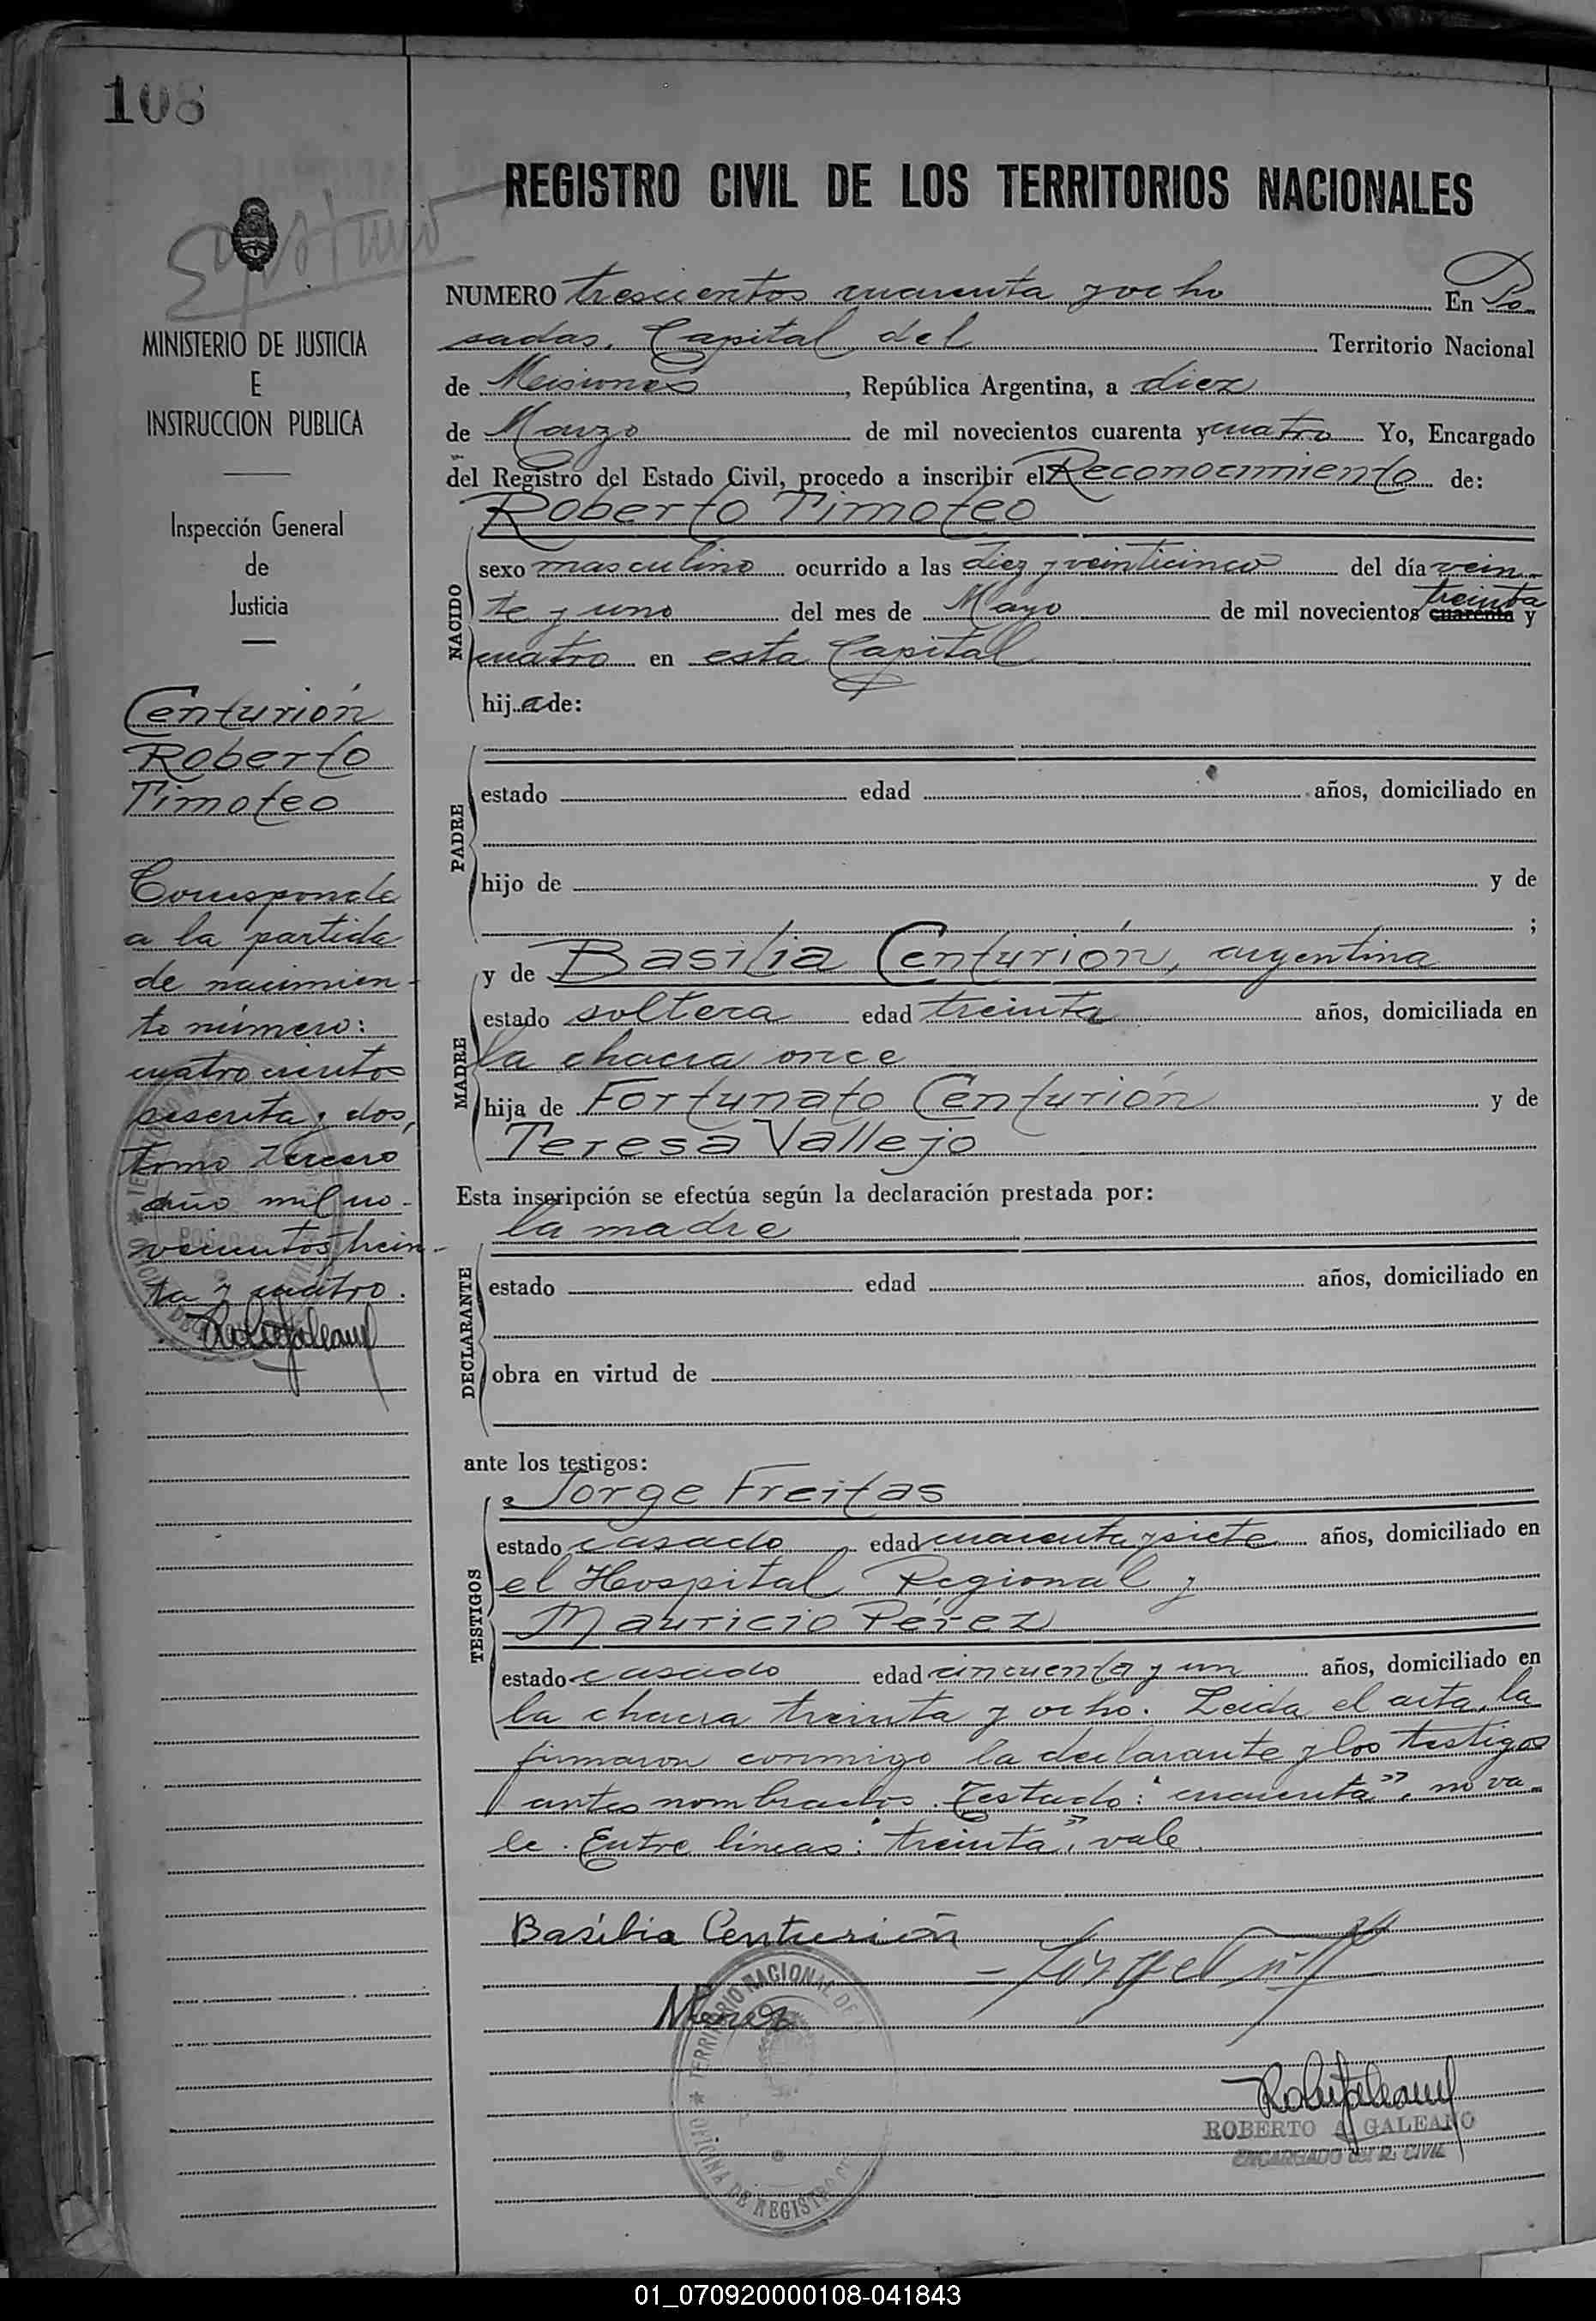 108
REGISTRO CIVIL DE LOS TERRITORIOS NACIONALES
MINISTERIO DE JUSTICIA
E
INSTRUCCION PUBLICA
Inspección General
de
Justicia
Centurión
Roberto
Timoteo
Corresponde
a la partida
de nacimien-
to número:
cuatrocientos
sesenta y dos,
tomo tercero
año mil no-
vecientos trein-
ta y cuatro.
NUMERO trescientos cuarenta y ocho En Po
sadas, Capital del Territorio Nacional
de Misiones, República Argentina, a diez
de Marzo de mil novecientos cuarenta y cuatro Yo, Encargado
del Registro del Estado Civil, procedo a inscribir el Reconocimiento de:
Roberto Timoteo
NACIDO
sexo masculino ocurrido a las diez y veinticinco del día vein
treinta
te y uno del mes de Mayo de mil novecientos cuarenta y
cuatro en esta Capital
hij a de:
PADRE
estado edad años, domiciliado en
hijo de y de
;
MADRE
y de Basilia Centurión, argentina
estado soltera edad treinta años, domiciliada en
la chacra once
hija de Fortunato Centurión y de
Teresa Vallejo
Esta inscripción se efectúa según la declaración prestada por:
la madre
DECLARANTE
estado edad años, domiciliado en
obra en virtud de
ante los testigos:
TESTIGOS
Jorge Freitas
estado casado edad cuarenta y siete años, domiciliado en
el Hospital Regional y
Mauricio Pérez
estado casado edad cincuenta y un años, domiciliado en
la chacra treinta y ocho. Leida el acta, la
firmaron conmigo la declarante y los testigos
antes nombrados. Testado: "cuarenta", no va
le. Entre líneas: "treinta", vale.
Basilia Centurión
TERRITORIO NACIONAL DE
OFICINA DE REGISTRO
ROBERTO A. GALEANO
ENCARGADO del R. CIVIL
01_070920000108-041843